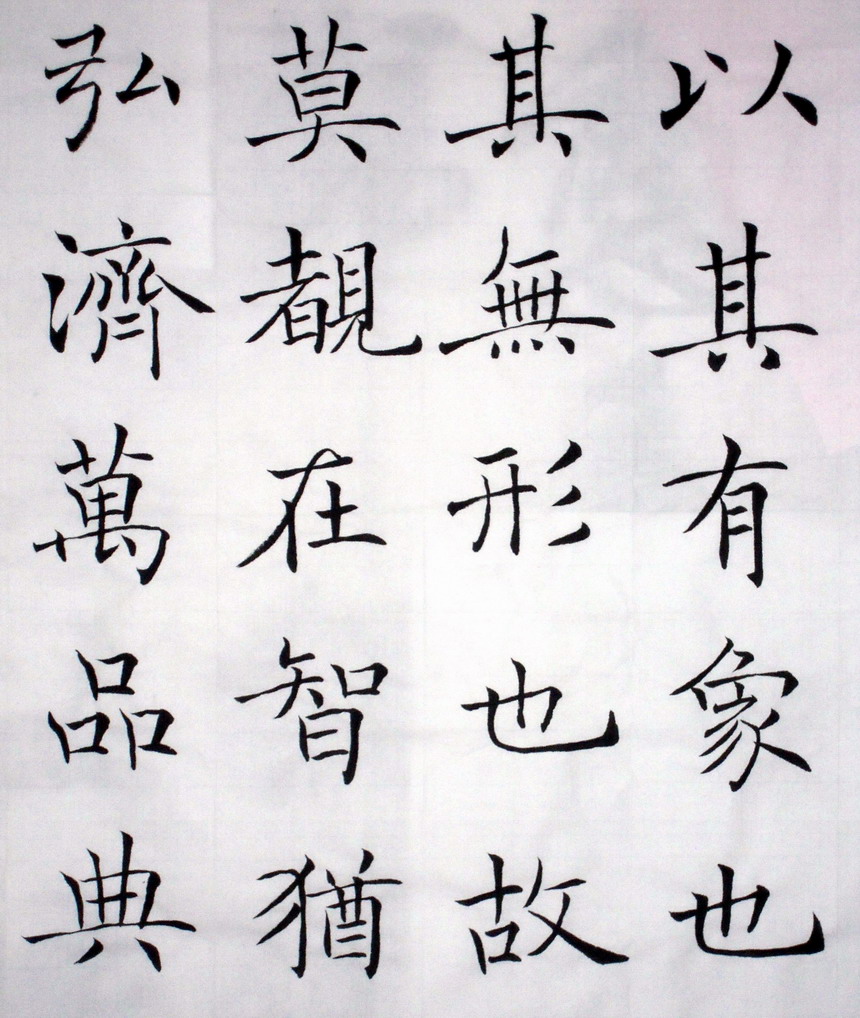 以其有象也
其無形也故
莫覩在智猶
弘濟萬品典